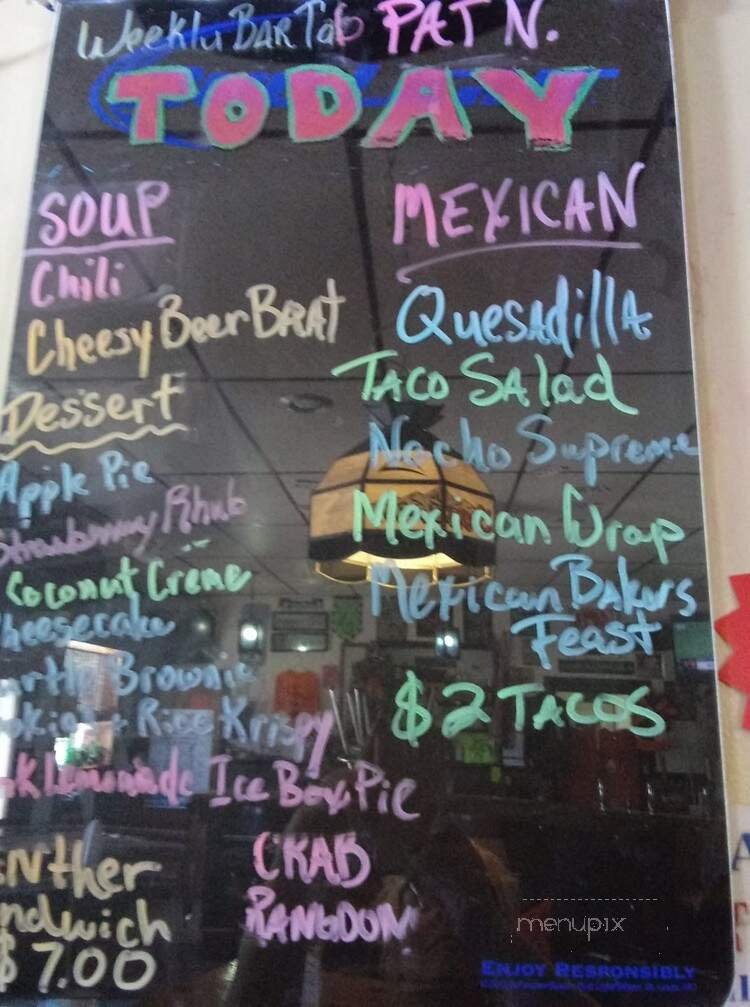 Weekly BAR Tab PAT N.
TODAY
SOUP
Chili
Cheesy Beer BRAt
Dessert
Apple Pie
Strawberry Rhub
Coconut Creme
Cheesecake
Brownie
+ Rice Krispy
Lemonade Ice Box Pie
$7.00
CRAB
RANGOON
MEXICAN
QuesAdillA
TACO SAlad
Nacho Supreme
Mexican Wrap
Mexican BAkers
Feast
$2 TACOS
menupix
ENJOY RESPONSIBLY